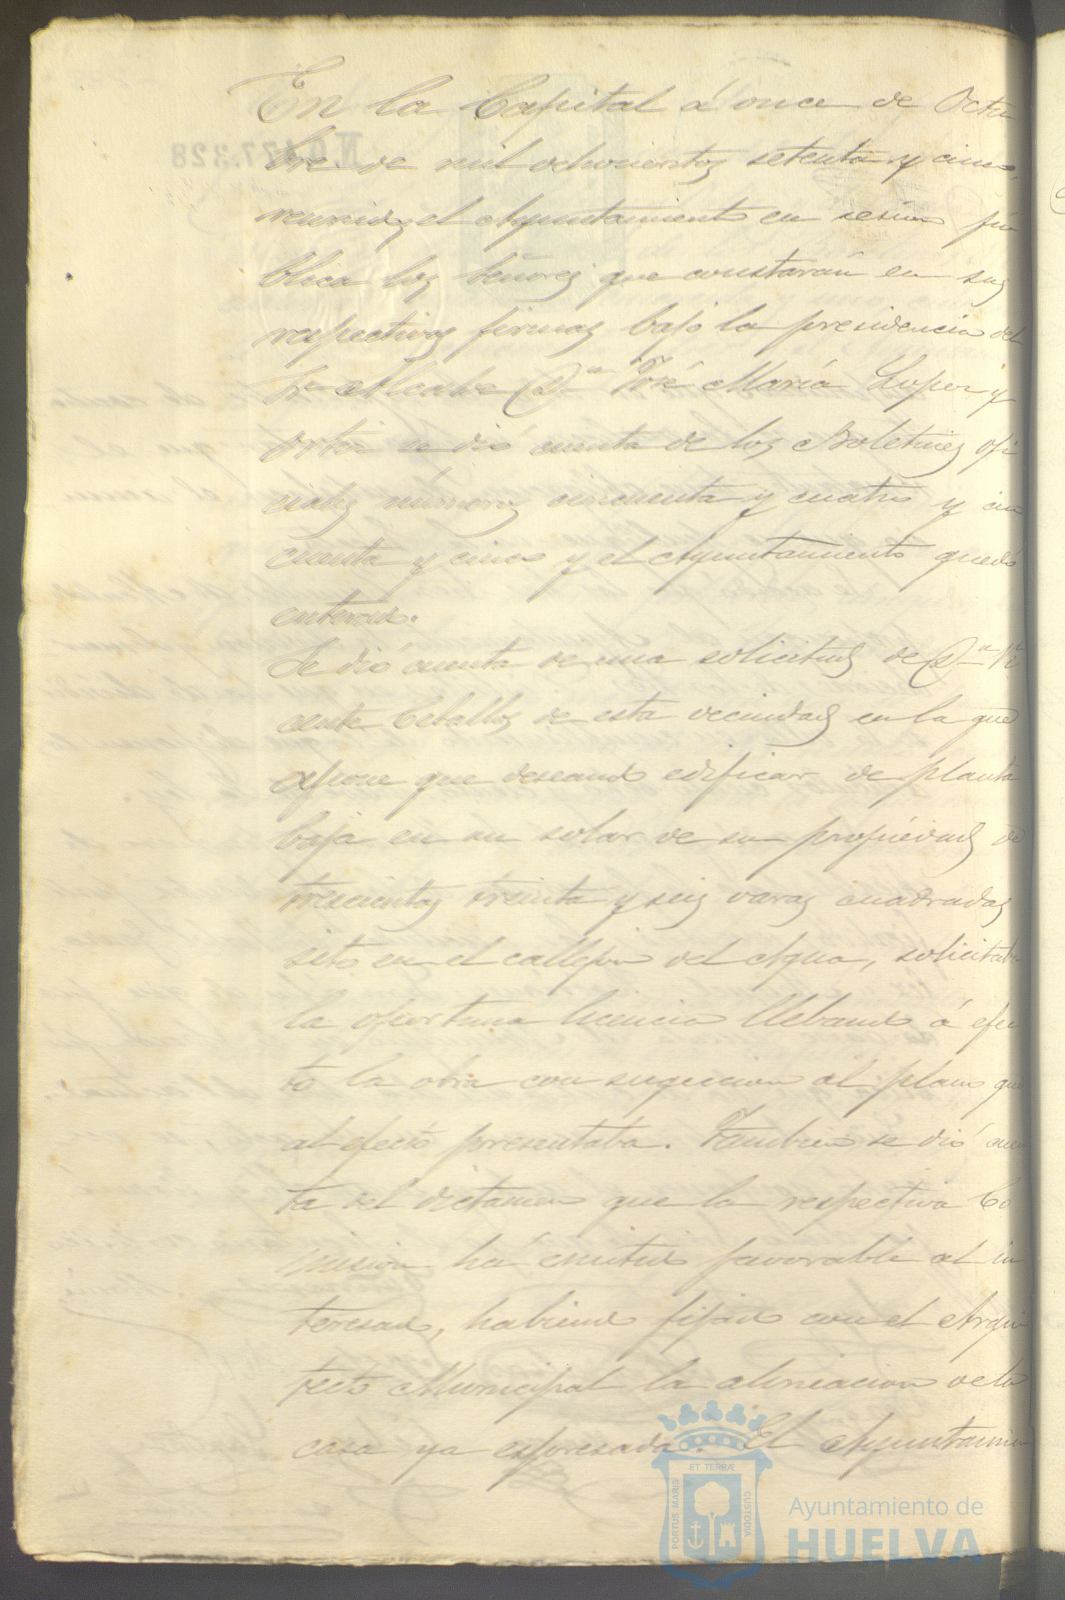 En la Capital á once de Octu
bre de mil ochocientos setenta y cinco,
reunido el Ayuntamiento en sesion pú
blica los señores que constarán en sus
respectivas firmas bajo la presidencia del
Sr. Alcalde Dn José María Lopez y
se dió cuenta de los Boletines ofi
ciales números cincuenta y cuatro y cin
cuenta y cinco y el Ayuntamiento quedó
enterado.
Se dió cuenta de una solicitud de Dn Vi
cente Ceballos de esta vecindad en la que
espone que deseando edificar de planta
baja en un solar de su propiedad de
trescientas treinta y seis varas cuadradas
sito en el callejon del Agua, solicitaba
la oportuna licencia llebando á efec
to la obra con sugecion al plano que
al efecto presentaba. Tambien se dió cuen
ta del dictamen que la respectiva Co
mision há emitido favorable al in
teresado, habiendo fijado con el Arqui
tecto Municipal la aliniacion de la
casa ya espresada. El Ayuntamien
N. 0.477.328
PORTUS MARIS
ET TERRÆ
CUSTODIA
Ayuntamiento de
HUELVA